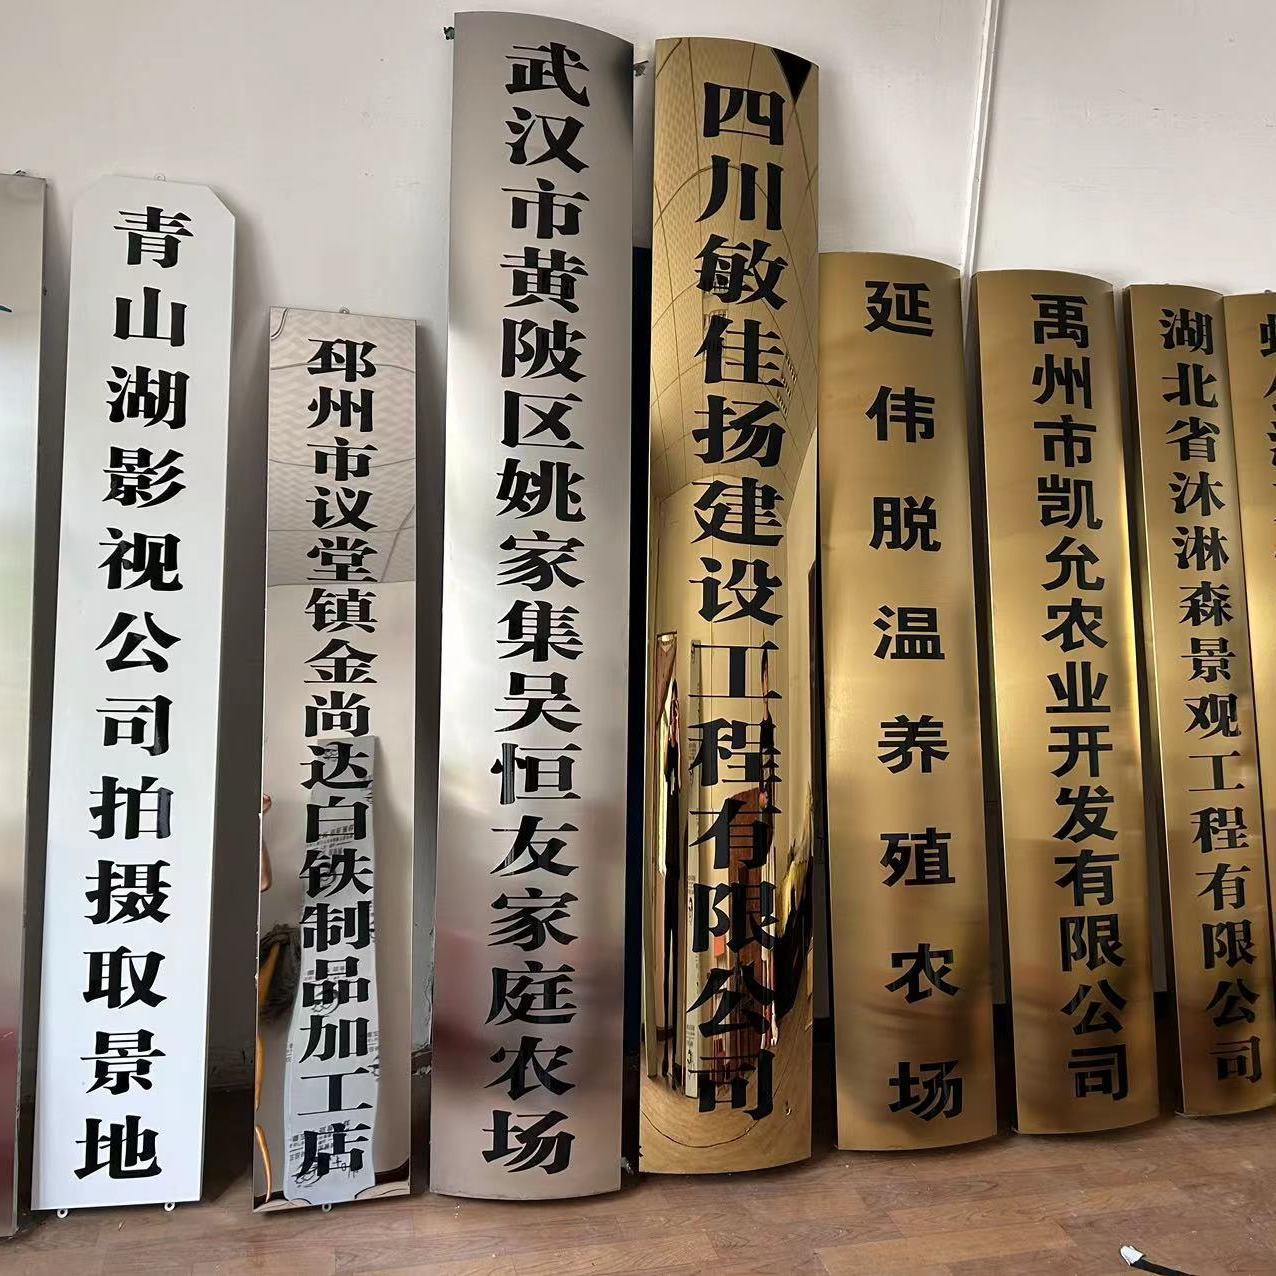 青山湖影视公司拍摄取景地
邳州市议堂镇金尚达白铁制品加工店
武汉市黄陂区姚家集吴恒友家庭农场
四川敏佳扬建设工程有限公司
延伟脱温养殖农场
禹州市凯允农业开发有限公司
湖北省沐淋森景观工程有限公司